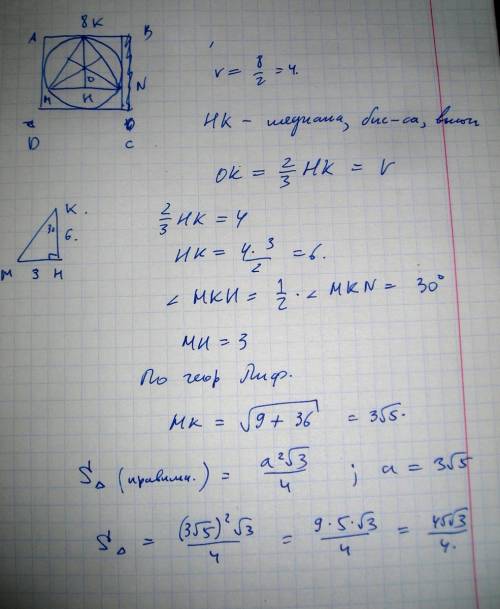 8 K
A B
O
M H N
D C
r = 8/2 = 4.
HK – медиана, бис-са, высот
OK = 2/3 HK = r
2/3 HK = 4
HK = 4·3/2 = 6.
∠ MKH = 1/2 · ∠ MKN = 30°
K.
30 6.
M 3 H
MH = 3
По теор Пиф.
MK = √(9 + 36) = 3√5.
S△ (правильн.) = a²√3/4 ; a = 3√5
S△ = (3√5)²√3/4 = 9·5·√3/4 = 45√3/4.